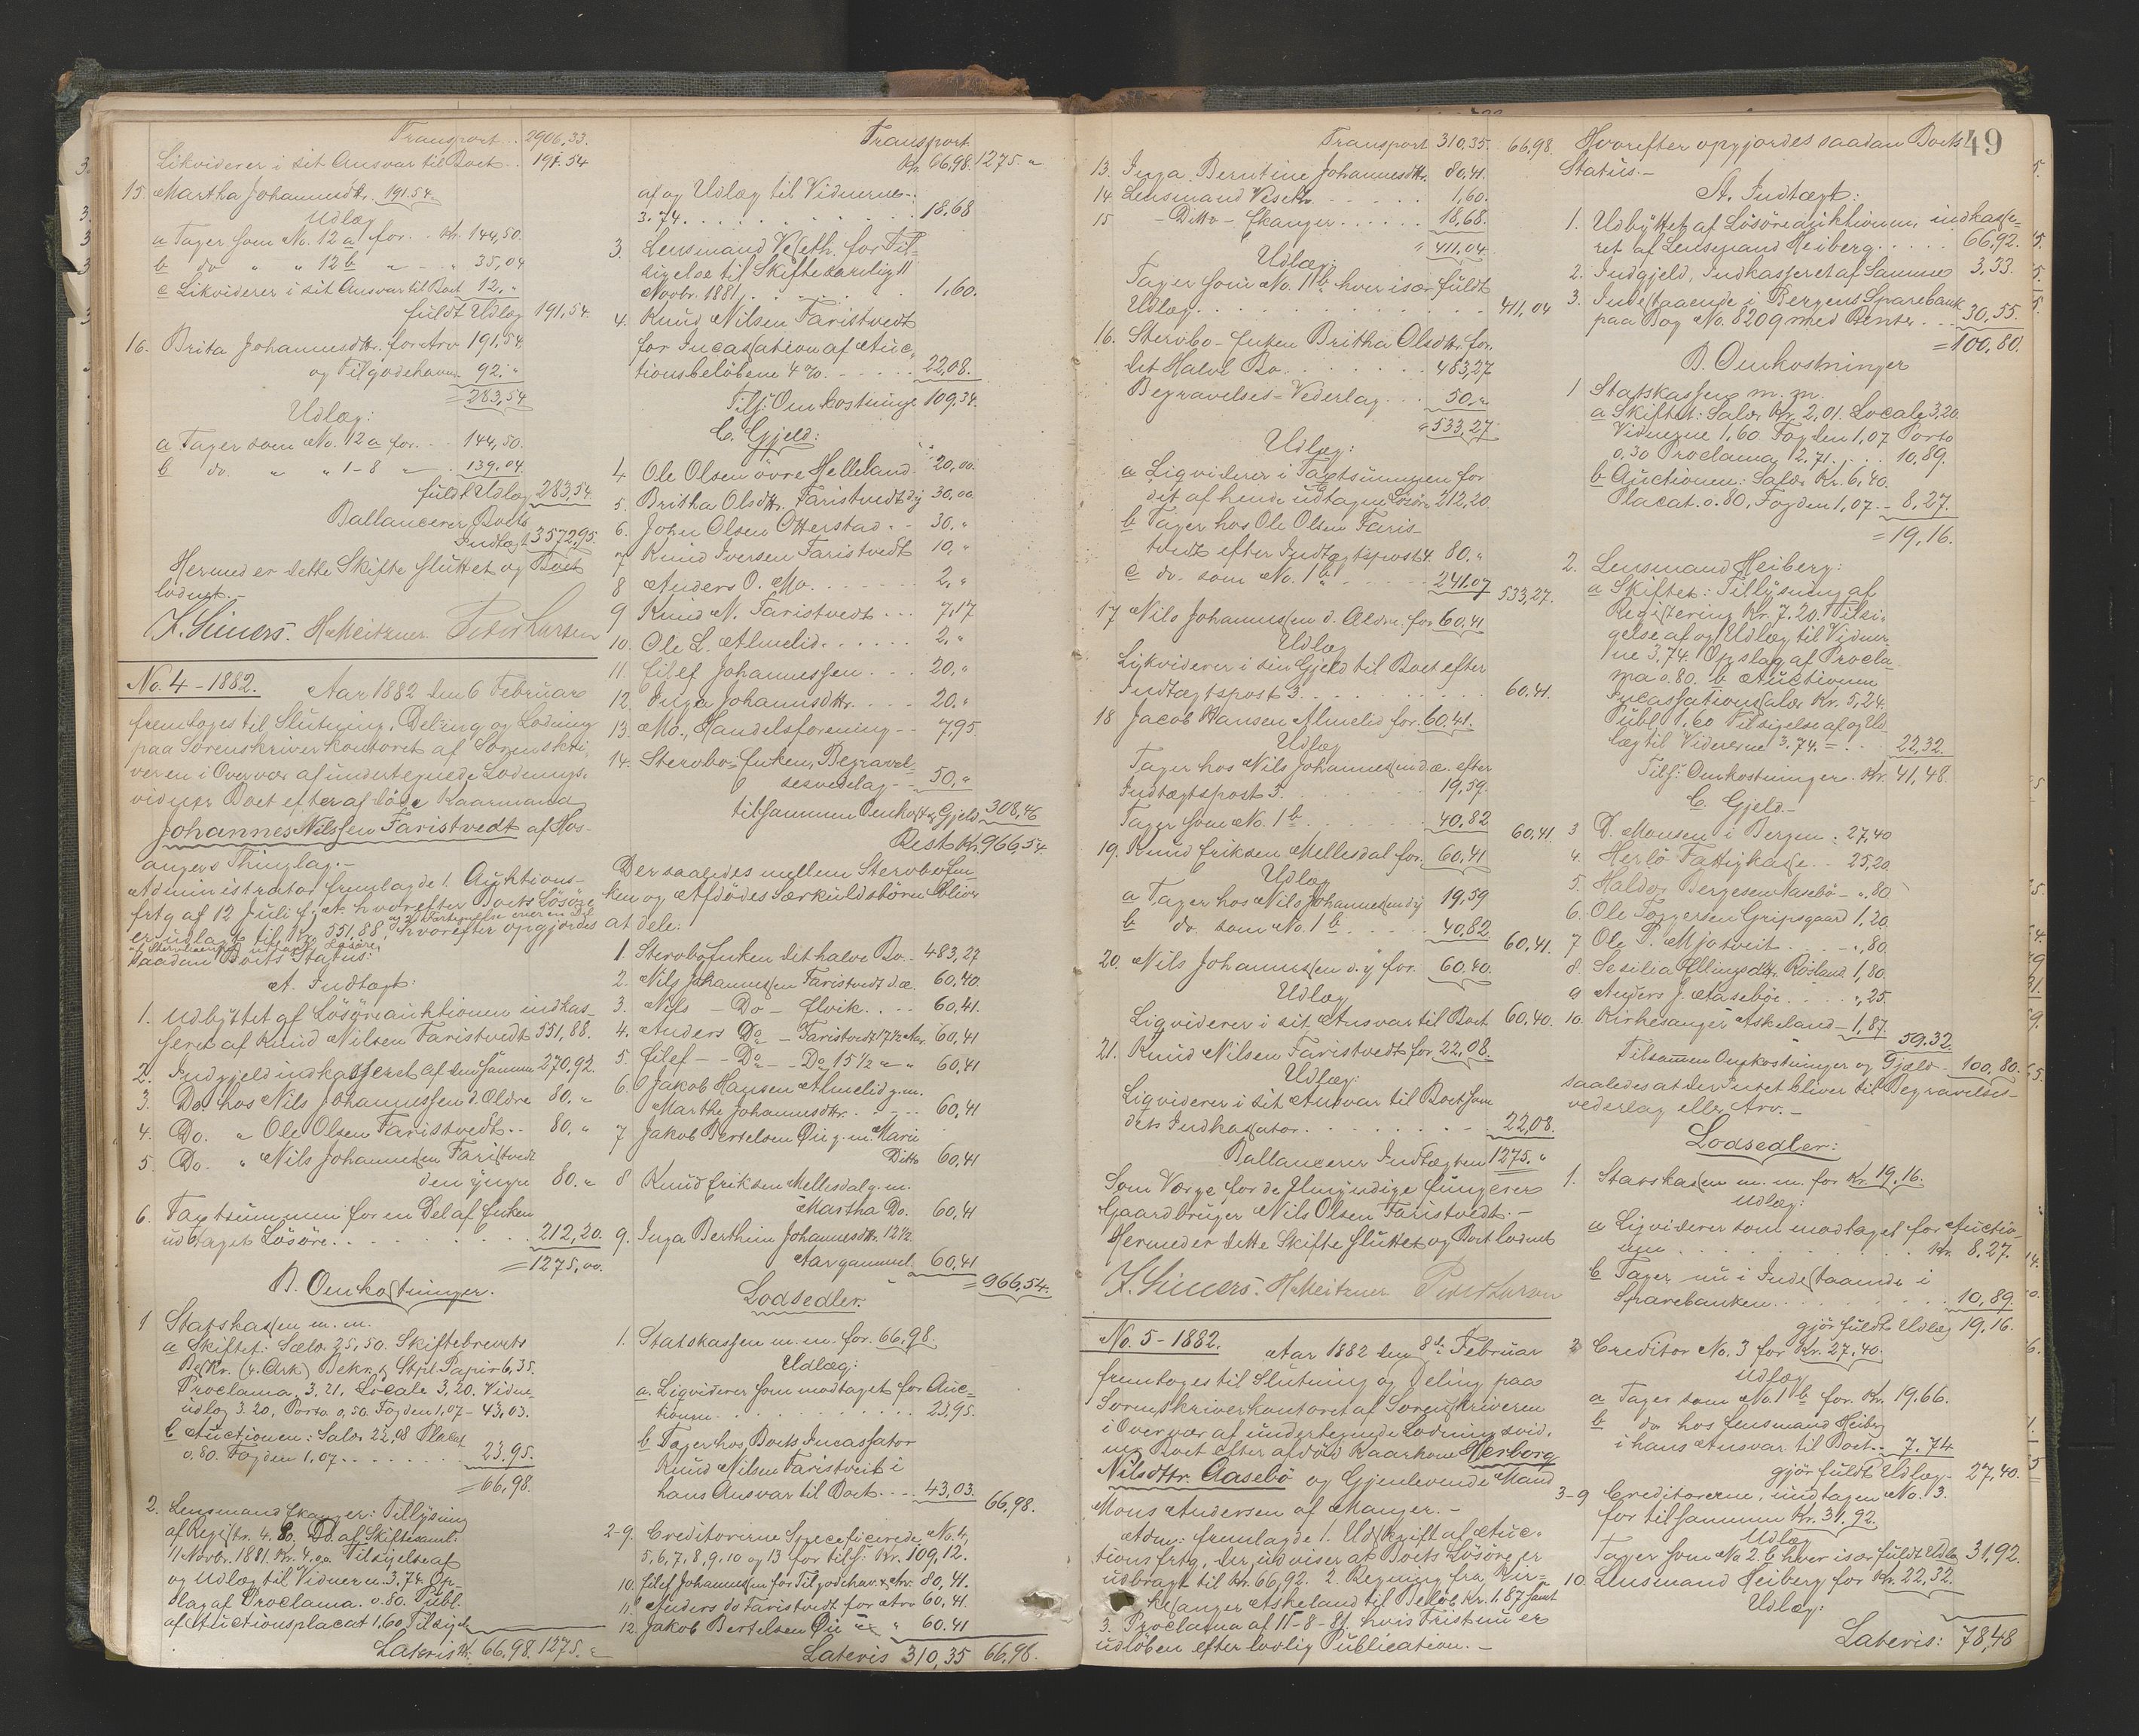 Transport . . 2906,33.
Likviderer i sit Ansvar til Boet . 191.54
15. Martha Johannesdtr. 191.54.
Udlæg
a Tager som No. 12 a for . . Kr. 144,50.
b do " " 12 b " - " 35,04
c Likviderer i sit Ansvar til Boet 12,"
fuldt Udlæg 191,54.
16. Brita Johannesdtr. for Arv 191.54
og Tilgodehav. 92."
= 283,54
Udlæg:
a Tager som No. 12 a for . . 144,50.
b do. " " 1-8 " . 139.04.
fuldt Udlæg 283,54.
Ballancerer Boets
Indtægt 3572,95.
Hermed er dette Skifte sluttet og Boet
lodnet.-
H. Meitzner Peder Larsen
No. 4 - 1882. Aar 1882 den 6 Februar
fremtoges til Slutning, Deling og Lodning
paa Sorenskriverkontoret af Sorenskri-
veren i Overvær af undertegnede Lodnings-
vidner Boet efter afdøde Kaarmand
Johannes Nilssen Faristvedt af Hos-
angers Thinglag.-
Administrator fremlagde 1. Auktions-
frtg af 12 Juli f. A. hvorefter Boets Løsøre
er udlagt til Kr. 551,88, Hvorefter opgjordes
saadan Boets Status:
A. Indtægt:
1. Udbyttet af Løsøreauktionen indkas-
seret af Knud Nilsen Faristvedt 551,88.
2. Indgjeld indkasseret af densamme 270.92.
3. Do. hos Nils Johannessen d. Ældre 80. "
4. Do. " Ole Olsen Faristvedt . . 80, "
5. Do. " Nils Johannessen Faristvedt
den yngre 80. "
6. Taxtsummen for en Del af Enken
udtaget Løsøre . . . . . 212,20.
= 1275,00.
B. Omkostninger.
1 Statskassen m. m.
a Skiftet: Salær 25,50. Skiftebrevets
Beskr. (4. Ark) Bekr. & Stpl. Papir 6,35.
Proclama 3.21, Locale 3,20. Vidne-
udlæg 3.20, Porto 0,50. Fogden 1,07 - 43,03.
b Auctionen: Salær 22,08 Placat
0.80. Fogden 1.07 . . . . . . 23.95.
= 66,98.
2. Lensmand Ekanger: Tillysning
af Registr. 4.80, Do. af Skiftesaml.
11 Novbr. 1881. Kr. 4.00. Tilsigelse af
og Udlæg til Vidnerne. 3,74. Op-
slag af Proclama. 0.80. Publ.
af Auctionsplacat 1.60 Tilsigelse
Lateris Kr. 66,98. 1275. "
Transport
Kr. 66,98. 1275. "
af og Udlæg til Vidnerne.
3.74. . . . . . . . . . 18,68
3. Lensmand Veseth. for Til-
sigelse til Skiftesamlig 11
Novbr. 1881. . . . . . . 1,60.
4. Knud Nilsen Faristvedt
for Incassation af Auc-
tionsbeløbene 4 %. - - - - - 22,08.
Tils: Omkostninger 109,34.
C. Gjeld:
4 Ole Olsen øvre Helleland . 20,00.
5. Britha Olsdtr. Faristvedt dy 30,00
6. John Olsen Otterstad . - 30. "
7 Knud Iversen Faristvedt 10, "
8 Anders O. Mo . . . . . . 2, "
9 Knud N. Faristvedt . . . 7,17
10. Ole L. Almelid . . . . . . 2. "
11. Eilef Johannessen . . . 20, "
12. Inga Johannsdtr. . . . . 20. "
13. Mo., Handelsforening - - 7,95
14. Stervbo-Enken, Begravel-
sesvederlag - - 50, "
tilsammen Omkost & Gjeld 308,46
Rest Kr. 966,54.
Der saaledes mellem Stervboen-
ken og Afdødes Særkuldsbørn bliver
at dele:
1. Stervboenken det halve Bo . . 483,27
2. Nils Johannessen Faristvedt d.æ. 60,40.
3. Nils - Do - Elvik . . . . 60,41
4. Anders Do - Faristvedt 17½ Aar 60,41
5. Eilef - - Do - - Do 15½ " " 60,41
6. Jakob Hansen Almelid g. m.
Marthe Johannesdtr. . - - . 60,41
7 Jakob Bertelsen Øi g. m. Marie
Ditto 60,41
8 Knud Eriksen Mellesdal g. m.
Martha Do. 60,41
9. Inga Berthine Johannesdtr. 12½
Aar gammel. 60,41
= 966,54.
Lodsedler.
1. Statskassen m. m. for 66,98.
Udlæg:
a. Liqviderer som modtaget for Auc-
tionen. . . . . . . . . . . 23,95.
b Tager hos Boets Incassator
Knud Nilsen Faristveit i
hans Ansvar til Boet . . . . 43,03 66,98.
2-9. Creditorerne Specificerede No. 4,
5, 6, 7, 8, 9, 10 og 13 for tils: Kr. 109,12.
10. Eilef Johannessen for Tilgodehav. & Arv. 80,41.
11. Anders do Faristvedt for Arv 60,41.
12. Jakob Bertelsen Øi " " 60.41
Lateris 310,35 66,98.
49
Transport 310,35. 66,98.
13. Inga Berntine Johannesdtr. 80,41.
14 Lensmand Veseth . . - - - 1,60.
15 - Ditto - Ekanger . . . . . . 18,68.
" 411,04.
Udlæg:
Tager som No. 1 b hver især fuldt
Udlæg . . . . . . . . . . . 411,04
16. Stervbo-Enken Britha Olsdtr. for.
det Halve Bo . . . . . . . 483,27
Begravelses-Vederlag . . . 50,"
= 533,27
Udlæg:
a Liqviderer i Taxtsummen for
det af hende udtagne Løsøre 212,20
b Tager hos Ole Olsen Faris-
tvedt efter Indtægtspost 4. 80. "
c do. som No. 1 b . . . . . . 241.07 533,27.
17 Nils Johannessen d. Ældre for 60.41
Udlæg
Likviderer i sin Gjeld til Boet efter
Indtægtspost 3. . . . . . . . . . . 60,41.
18 Jacob Hansen Almelid for. 60,41.
Udlæg
Tager hos Nils Johannessen d. æ. efter
Indtægtspost 3. . . . . . . . 19,59.
Tager som No. 1 b . . . . . . 40,82 60,41.
19. Knud Eriksen Mellesdal for. 60,41
Udlæg
a Tager hos Nils Johannessen dy 19,59
b do. som No. 1 b. . . . . . 40,82 60,41.
20. Nils Johannessen d. y for. 60.40.
Udlæg
Liqviderer i sit Ansvar til Boet 60,40.
21. Knud Nilsen Faristvedt for. 22,08.
Udlæg:
Liqviderer i sit Ansvar til Boet som
dets Indkassator. . . . . . . . . 22,08.
Ballancerer Indtægten 1275. "
Som Værge for de Umyndige fungerer
Gaardbruger Nils Olsen Faristvedt. -
Hermed er dette Skifte sluttet og Boet lodnet
H. Meitzner Peder Larsen
No. 5 - 1882. Aar 1882 den 8de Februar
fremtoges til Slutning og Deling paa
Sorenskriverkontoret af Sorenskriveren
i Overvær af undertegnede Lodningsvid-
ner Boet efter afdøde Kaarkone Herborg
Nilsdtr. Aasebö og Gjenlevende Mand
Mons Andersen af Manger. -
Adm: fremlagde 1. Udskrift af Auc-
tionsfrtg, der udviser at Boets Løsøre er
udbragt til Kr. 66,92. 2. Regning fra Kir-
kesanger Askeland til Beløb Kr. 1.87 samt
3. Proclama af 11-8-81. hvis Frist nu er
udløben efter lovlig Publication. -
Hvorefter opgjordes saadan Boets
Status. -
A. Indtægt:
1. Udbyttet af Løsøreauktionen, indkasse-
ret af Lensmand Heiberg . . . . . 66,92.
2. Indgjeld, Indkasseret af Samme 3,33.
3. Indestaaende i Bergens Sparebank
paa Bog No. 8209 med Renter . . . 30,55.
= 100,80.
B. Omkostninger
1 Statskassen m. m.
a Skiftet: Salær Kr. 2,01. Locale 3,20.
Vidnerne 1,60 Fogden 1,07 Porto
0.30 Proclama 2.71. . . . 10,89.
b Auctionen: Salær Kr. 6,40.
Placat. 0.80, Fogden 1,07. - 8,27.
= 19,16.
2. Lensmand Heiberg:
a Skiftet: Tillysning af
Registering Kr. 7.20. Tilsi-
gelse af og Udlæg til Vidner-
ne 3,74. Opslag af Procla-
ma 0.80. b Auctionen
Incassationssalær Kr. 5,24.
Publ. 1,60 Tilsigelse af og Ud-
læg til Vidnerne 3.74. = . . . 22,32.
Tils: Omkostninger. Kr. 41,48
C. Gjeld. -
3 D. Monsen i Bergen : 27,40
4. Herlö Fattigkasse . . . 25,20
5. Haldor Børgesen Aasebö - ",80
6. Ole Toggersen Gripsgaard 1,20
7 Ole P. Mjøtveit . . . - ",80.
8. Sesilia Ellingsdtr. Røsland 1,80.
9 Anders J. Aasebøe . . . . ",25.
10. Kirkesanger Askeland - 1,87 59,32
Tilsammen Omkostninger og Gjeld - 100,80.
saaledes at der Intet bliver til Begravelses-
vederlag eller Arv. -
Lodsedler:
1. Statskassen m. m. for Kr. 19,16.
Udlæg:
a Liqviderer som modtaget for Auctio-
nen . . . . . . . . . . . . Kr. 8,27.
b Tager nu i Indestaaende i
Sparebanken . . . . . . . . . . 10,89.
gjør fuldt Udlæg 19,16.
2 Creditor No. 3 for Kr. 27,40.
Udlæg
a Tager som No. 1 b for. Kr. 19.66.
b do hos Lensmand Heiberg
i hans Ansvar til Boet . - 7.74
gjør fuldt Udlæg - 27,40.
3-9 Creditorerne, undtagen No. 3.
for tilsammen Kr. 31,92.
Udlæg
Tager som No 2. b hver især fuldt Udlæg 31,92.
10. Lensmand Heiberg for Kr. 22,32.
Udlæg:
Lateris: 78,48